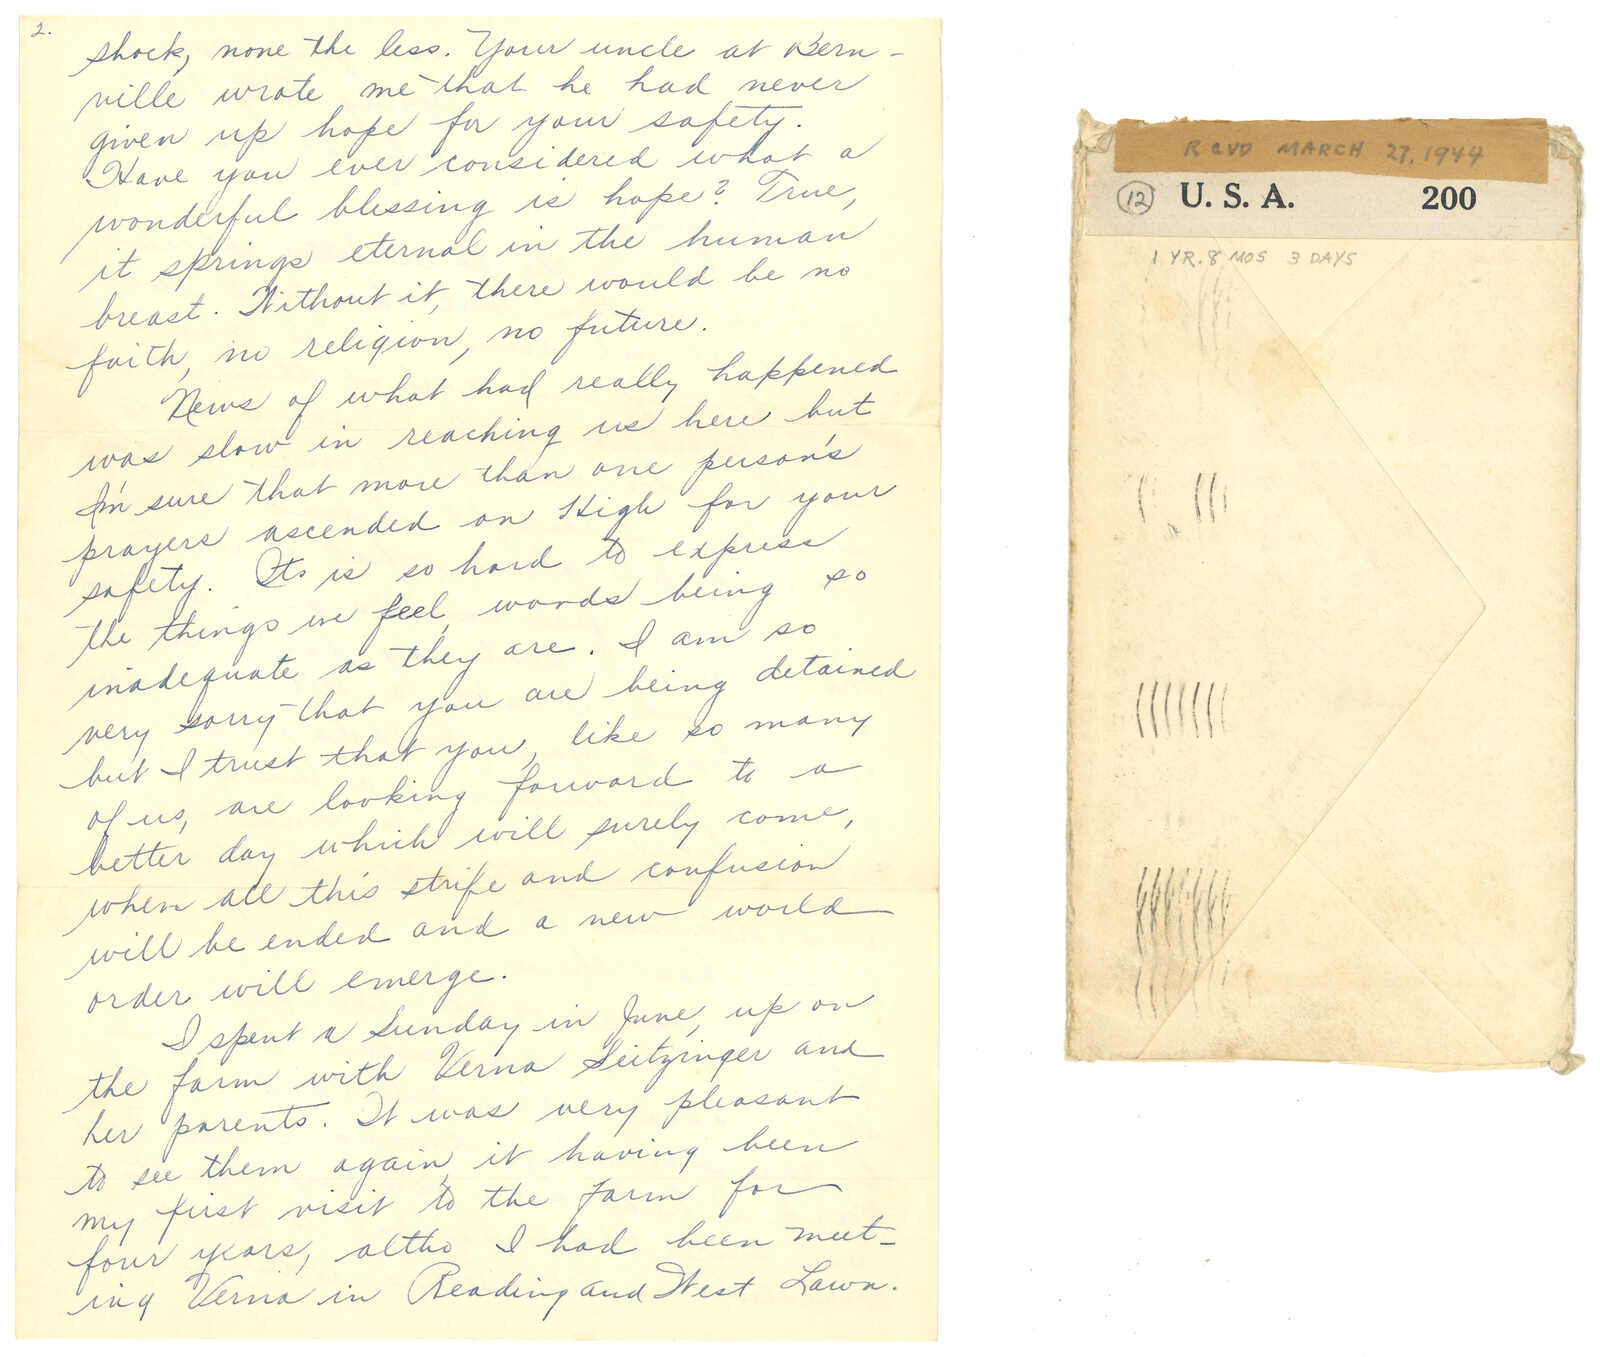 2.
shock, none the less. Your uncle at Bern-
ville wrote me that he had never
given up hope for your safety.
Have you ever considered what a
wonderful blessing is hope? True,
it springs eternal in the human
breast. Without it, there would be no
faith, no religion, no future.
News of what had really happened
was slow in reaching us here but
I'm sure that more than one person's
prayers ascended on High for your
safety. Its is so hard to express
the things we feel, words being so
inadequate as they are. I am so
very sorry that you are being detained
but I trust that you, like so many
of us, are looking forward to a
better day which will surely come,
when all this strife and confusion
will be ended and a new world
order will emerge.
I spent a Sunday in June, up on
the farm with Verna Seitzinger and
her parents. It was very pleasant
to see them again, it having been
my first visit to the farm for
four years, altho I had been meet-
ing Verna in Reading and West Lawn.
RCVD MARCH 27, 1944
12 U. S. A. 200
1 YR. 8 MOS 3 DAYS